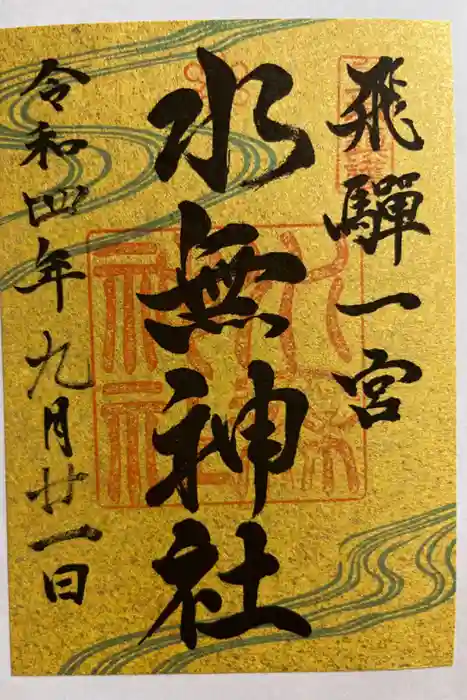 飛驒一宮
水無神社
令和四年九月廿一日